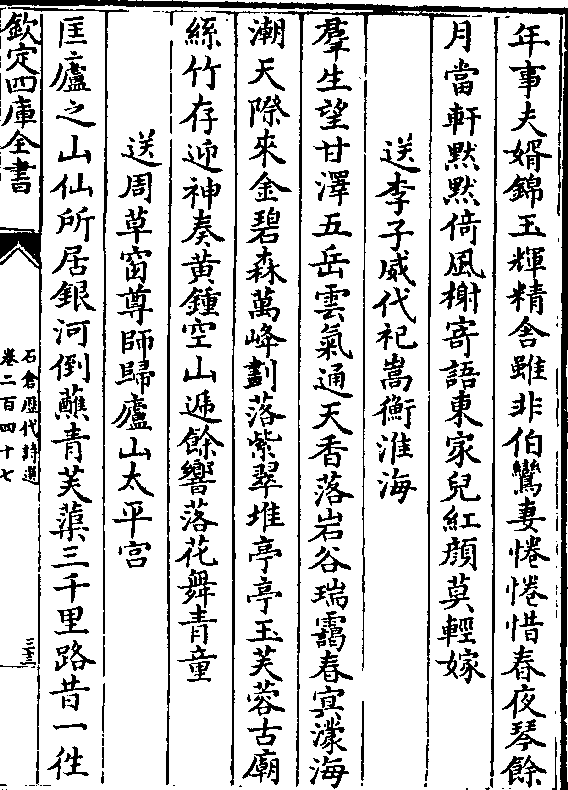 年事夫婿錦玉輝精舍雖非伯鸞妻惓惓惜春夜琴餘
月當軒默默倚風榭寄語東家兒紅顔莫輕嫁
送李子威代祀嵩衡淮海
羣生望甘澤五岳雲氣通天香落岩谷瑞靄春冥濛海
潮天際來金碧森萬峰劃落紫翠堆亭亭玉芙蓉古廟
絲竹存迎神奏黄鍾空山遞餘響落花舞青童
送周草窗尊師歸廬山太平宫
匡廬之山仙所居銀河倒蘸青芙蕖三千里路昔一往
欽定四庫全書
石倉歷代詩選
卷二百四十七
三三